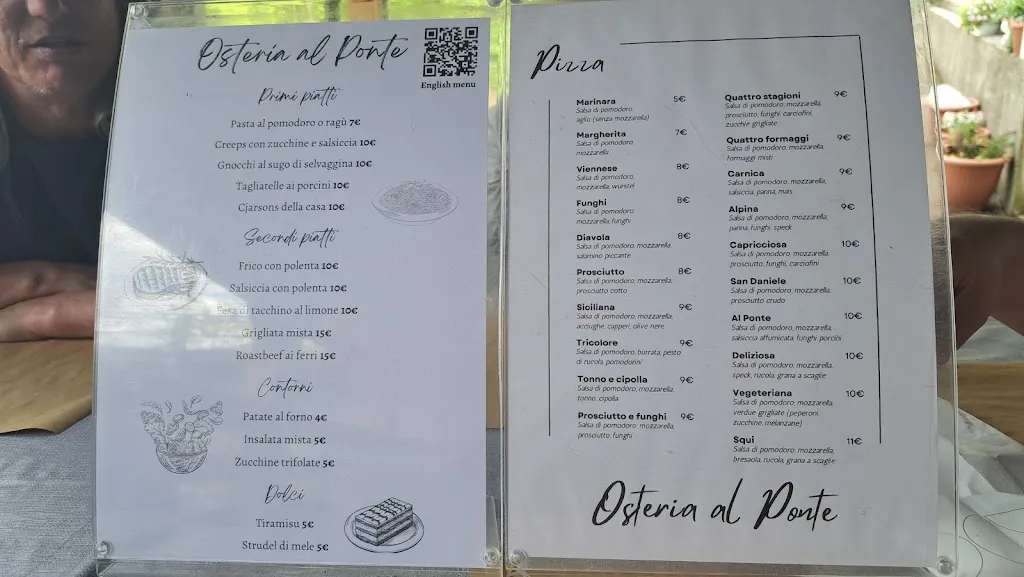 Osteria al Ponte
English menu
Primi piatti
Pasta al pomodoro o ragù 7€
Creeps con zucchine e salsiccia 10€
Gnocchi al sugo di selvaggina 10€
Tagliatelle ai porcini 10€
Cjarsons della casa 10€
Secondi piatti
Frico con polenta 10€
Salsiccia con polenta 10€
Fesa di tacchino al limone 10€
Grigliata mista 15€
Roastbeef ai ferri 15€
Contorni
Patate al forno 4€
Insalata mista 5€
Zucchine trifolate 5€
Dolci
Tiramisu 5€
Strudel di mele 5€
Pizza
Marinara 5€
Salsa di pomodoro,
aglio (senza mozzarella)
Margherita 7€
Salsa di pomodoro,
mozzarella
Viennese 8€
Salsa di pomodoro,
mozzarella, wurstel
Funghi 8€
Salsa di pomodoro,
mozzarella, funghi
Diavola 8€
Salsa di pomodoro, mozzarella,
salamino piccante
Prosciutto 8€
Salsa di pomodoro, mozzarella,
prosciutto cotto
Siciliana 9€
Salsa di pomodoro, mozzarella,
acciughe, capperi, olive nere
Tricolore 9€
Salsa di pomodoro, burrata, pesto
di rucola, pomodorini
Tonno e cipolla 9€
Salsa di pomodoro, mozzarella,
tonno, cipolla
Prosciutto e funghi 9€
Salsa di pomodoro, mozzarella,
prosciutto, funghi
Quattro stagioni 9€
Salsa di pomodoro, mozzarella,
prosciutto, funghi, carciofini,
zucchie grigliate
Quattro formaggi 9€
Salsa di pomodoro, mozzarella,
formaggi misti
Carnica 9€
Salsa di pomodoro, mozzarella,
salsiccia, panna, mais
Alpina 9€
Salsa di pomodoro, mozzarella,
panna, funghi, speck
Capricciosa 10€
Salsa di pomodoro, mozzarella,
prosciutto, funghi, carciofini
San Daniele 10€
Salsa di pomodoro, mozzarella,
prosciutto crudo
Al Ponte 10€
Salsa di pomodoro, mozzarella,
salsiccia affumicata, funghi porcini
Deliziosa 10€
Salsa di pomodoro, mozzarella,
speck, rucola, grana a scaglie
Vegeteriana 10€
Salsa di pomodoro, mozzarella,
verdue grigliate (peperoni,
zucchine, melanzane)
Squi 11€
Salsa di pomodoro, mozzarella,
bresaola, rucola, grana a scaglie
Osteria al Ponte